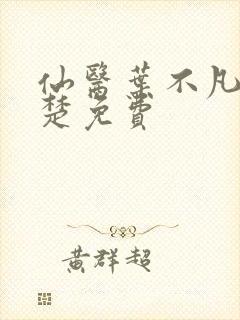 仙醫葉不凡
楚免費
黃群超